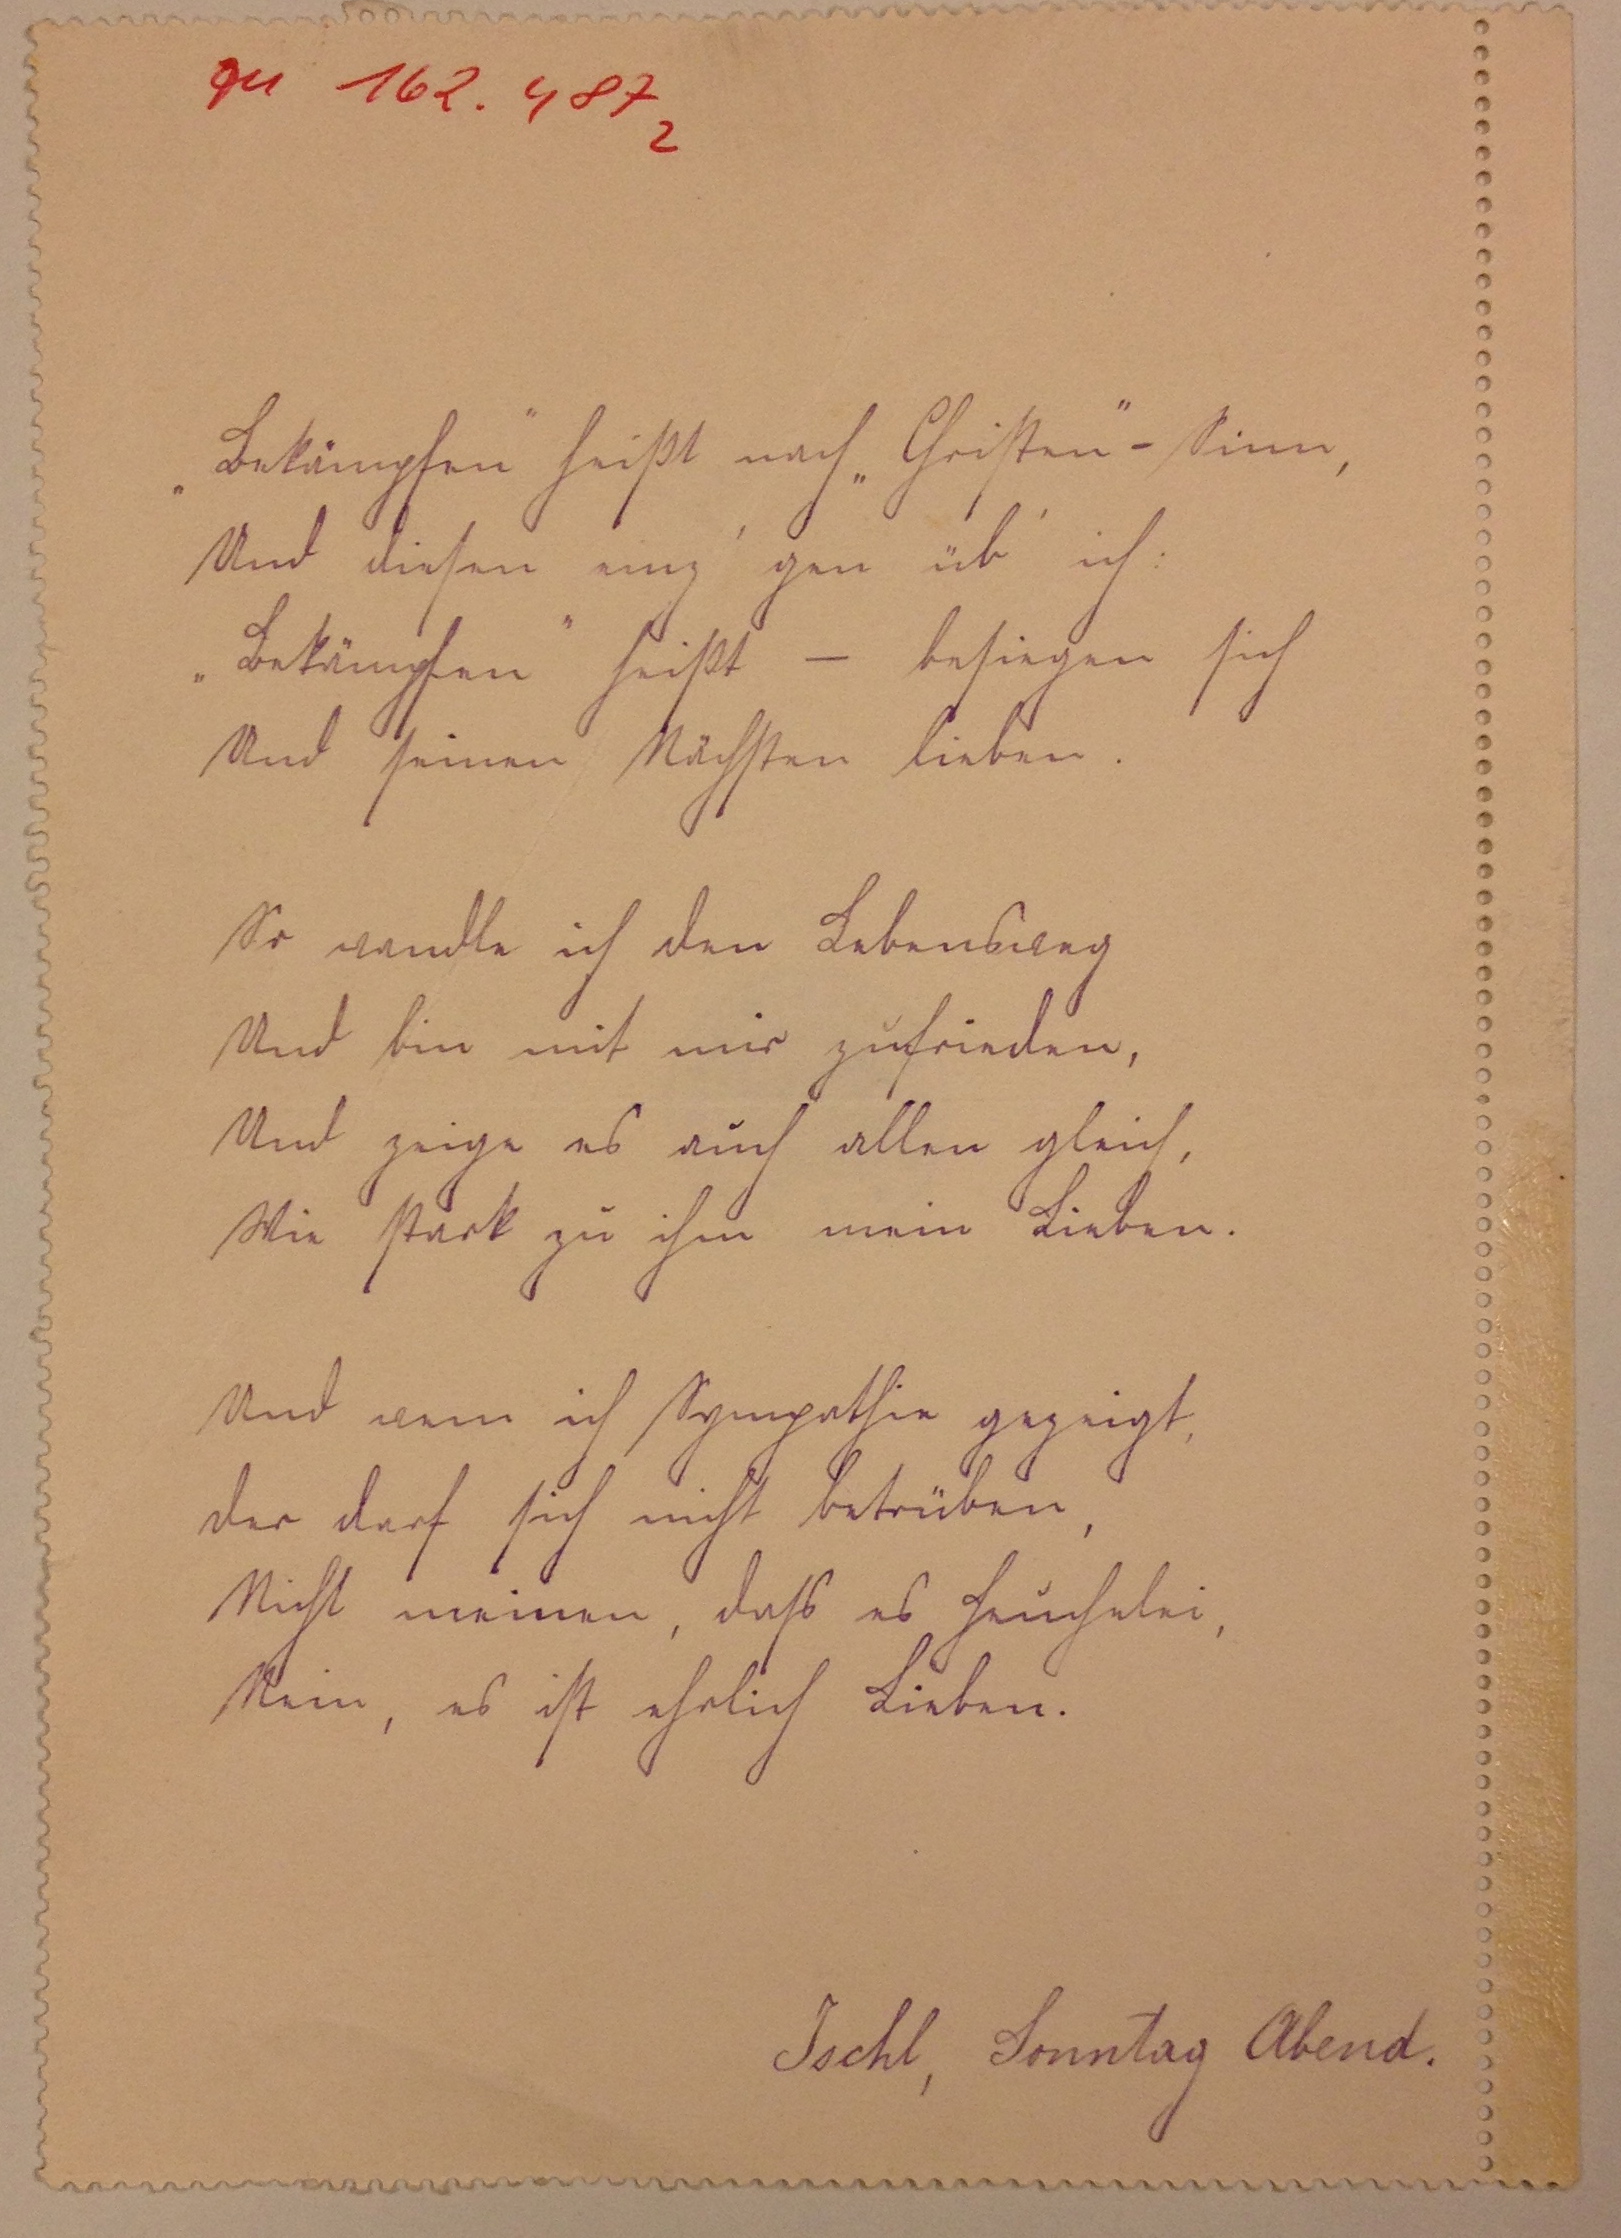 zu 162.487
2
„Bekämpfen" heißt nach „Christen"-Sinn,
Und diesen einz'gen üb' ich:
„Bekämpfen" heißt — besiegen sich
Und seinen Nächsten lieben.
So wandle ich den Lebensweg
Und bin mit mir zufrieden,
Und zeige es auch allen gleich,
Wie stark zu ihm mein Lieben.
Und wem ich Sympathie gezeigt,
der darf sich nicht betrüben,
Nicht meinen, dass es Heuchelei,
Nein, es ist ehrlich Lieben.
Ischl, Sonntag Abend.